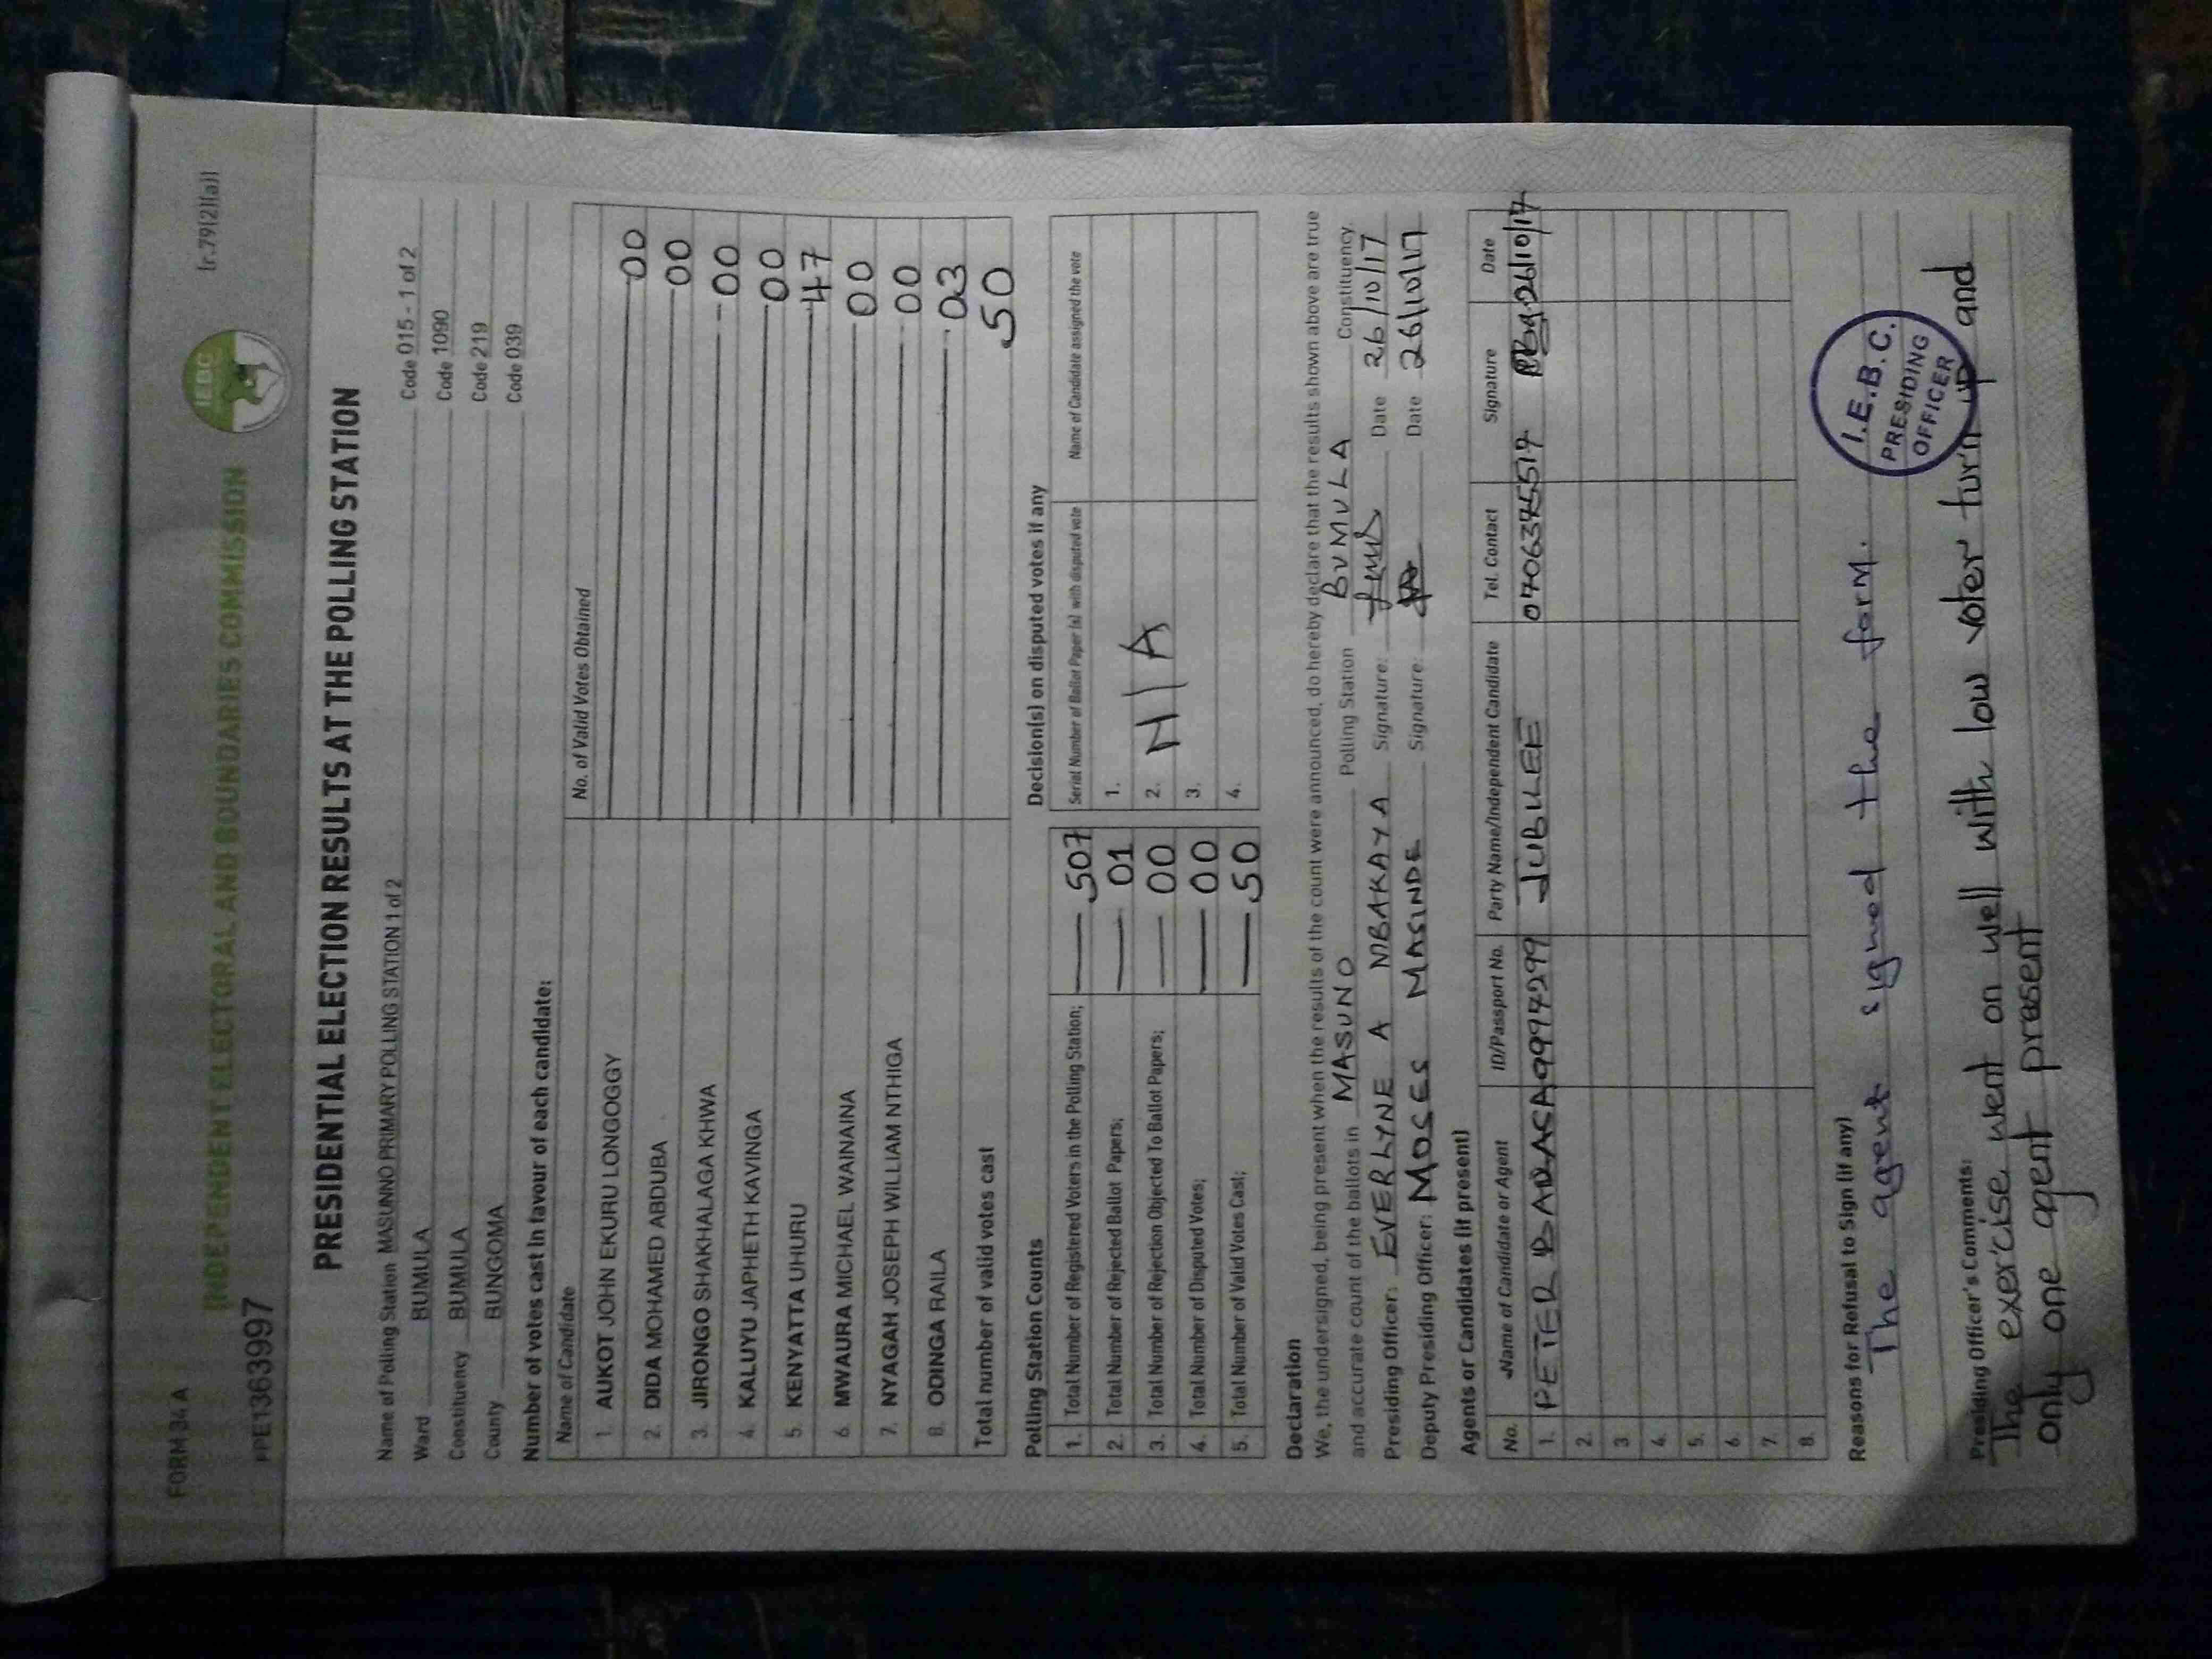 FORM 34 A
[r.79(2)(a)]
INDEPENDENT ELECTORAL AND BOUNDARIES COMMISSION
IEBC
PPE1363997
PRESIDENTIAL ELECTION RESULTS AT THE POLLING STATION
Name of Polling Station MASUNNO PRIMARY POLLING STATION 1 of 2 Code 015 - 1 of 2
Ward BUMULA Code 1090
Constituency BUMULA Code 219
County BUNGOMA Code 039
Number of votes cast in favour of each candidate:
Name of Candidate No. of Valid Votes Obtained
1. AUKOT JOHN EKURU LONGOGGY 00
2. DIDA MOHAMED ABDUBA 00
3. JIRONGO SHAKHALAGA KHWA 00
4. KALUYU JAPHETH KAVINGA 00
5. KENYATTA UHURU 47
6. MWAURA MICHAEL WAINAINA 00
7. NYAGAH JOSEPH WILLIAM NTHIGA 00
8. ODINGA RAILA 03
Total number of valid votes cast 50
Polling Station Counts
1. Total Number of Registered Voters in the Polling Station; 507
2. Total Number of Rejected Ballot Papers; 01
3. Total Number of Rejection Objected To Ballot Papers; 00
4. Total Number of Disputed Votes; 00
5. Total Number of Valid Votes Cast; 50
Decision(s) on disputed votes if any
Serial Number of Ballot Paper (s) with disputed vote Name of Candidate assigned the vote
1.
2. N/A
3.
4.
Declaration
We, the undersigned, being present when the results of the count were announced, do hereby declare that the results shown above are true
and accurate count of the ballots in MASUNO Polling Station BUMULA Constituency.
Presiding Officer: EVERLYNE A MBAKAYA Signature: Date 26/10/17
Deputy Presiding Officer: MOSES MASINDE Signature: Date 26/10/17
Agents or Candidates (if present)
No. Name of Candidate or Agent ID/Passport No. Party Name/Independent Candidate Tel. Contact Signature Date
1. PETER BARASA 9997299 JUBILEE 0706375517 26/10/17
2.
3
4.
5.
6.
7.
8.
Reasons for Refusal to Sign (if any)
The agent signed the form.
I.E.B.C.
PRESIDING
OFFICER
Presiding Officer's Comments:
The exercise went on well with low voter turn up and
only one agent present